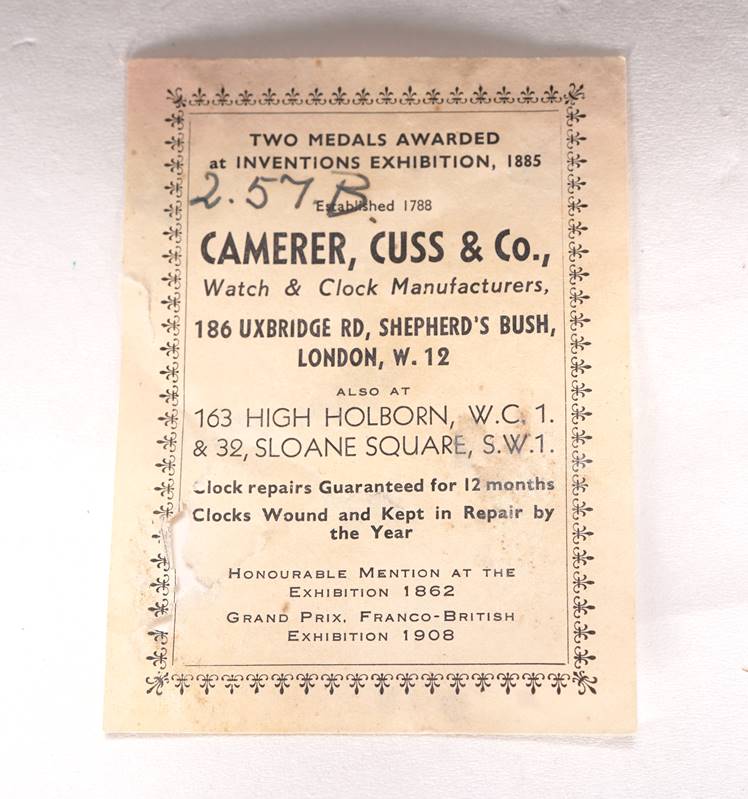 TWO MEDALS AWARDED
at INVENTIONS EXHIBITION, 1885
2.57 B.
Established 1788
CAMERER, CUSS & Co.,
Watch & Clock Manufacturers,
186 UXBRIDGE RD, SHEPHERD'S BUSH,
LONDON, W. 12
ALSO AT
163 HIGH HOLBORN, W.C. 1.
& 32, SLOANE SQUARE, S.W.1.
Clock repairs Guaranteed for 12 months
Clocks Wound and Kept in Repair by
the Year
HONOURABLE MENTION AT THE
EXHIBITION 1862
GRAND PRIX, FRANCO-BRITISH
EXHIBITION 1908